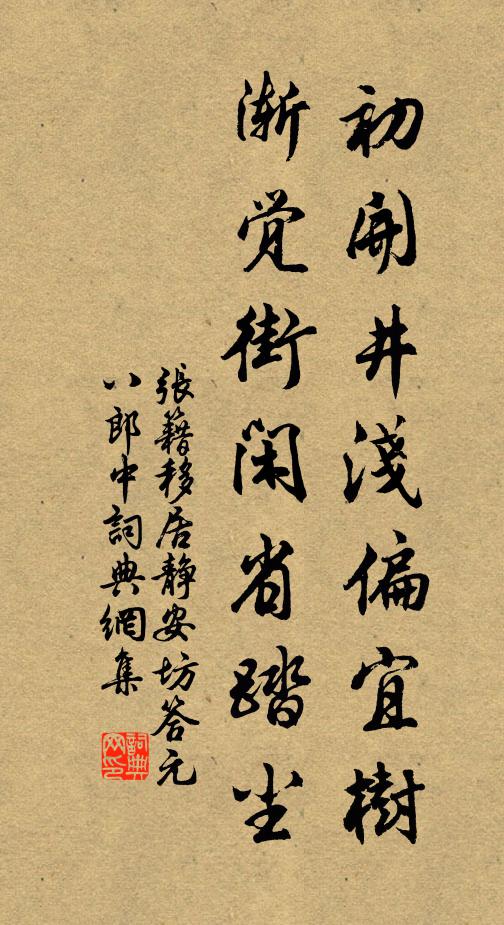 初開井淺偏宜樹
漸覺街閑省踏尘
張籍移居靜安坊答元
八郎中詞典網集
詞典网印